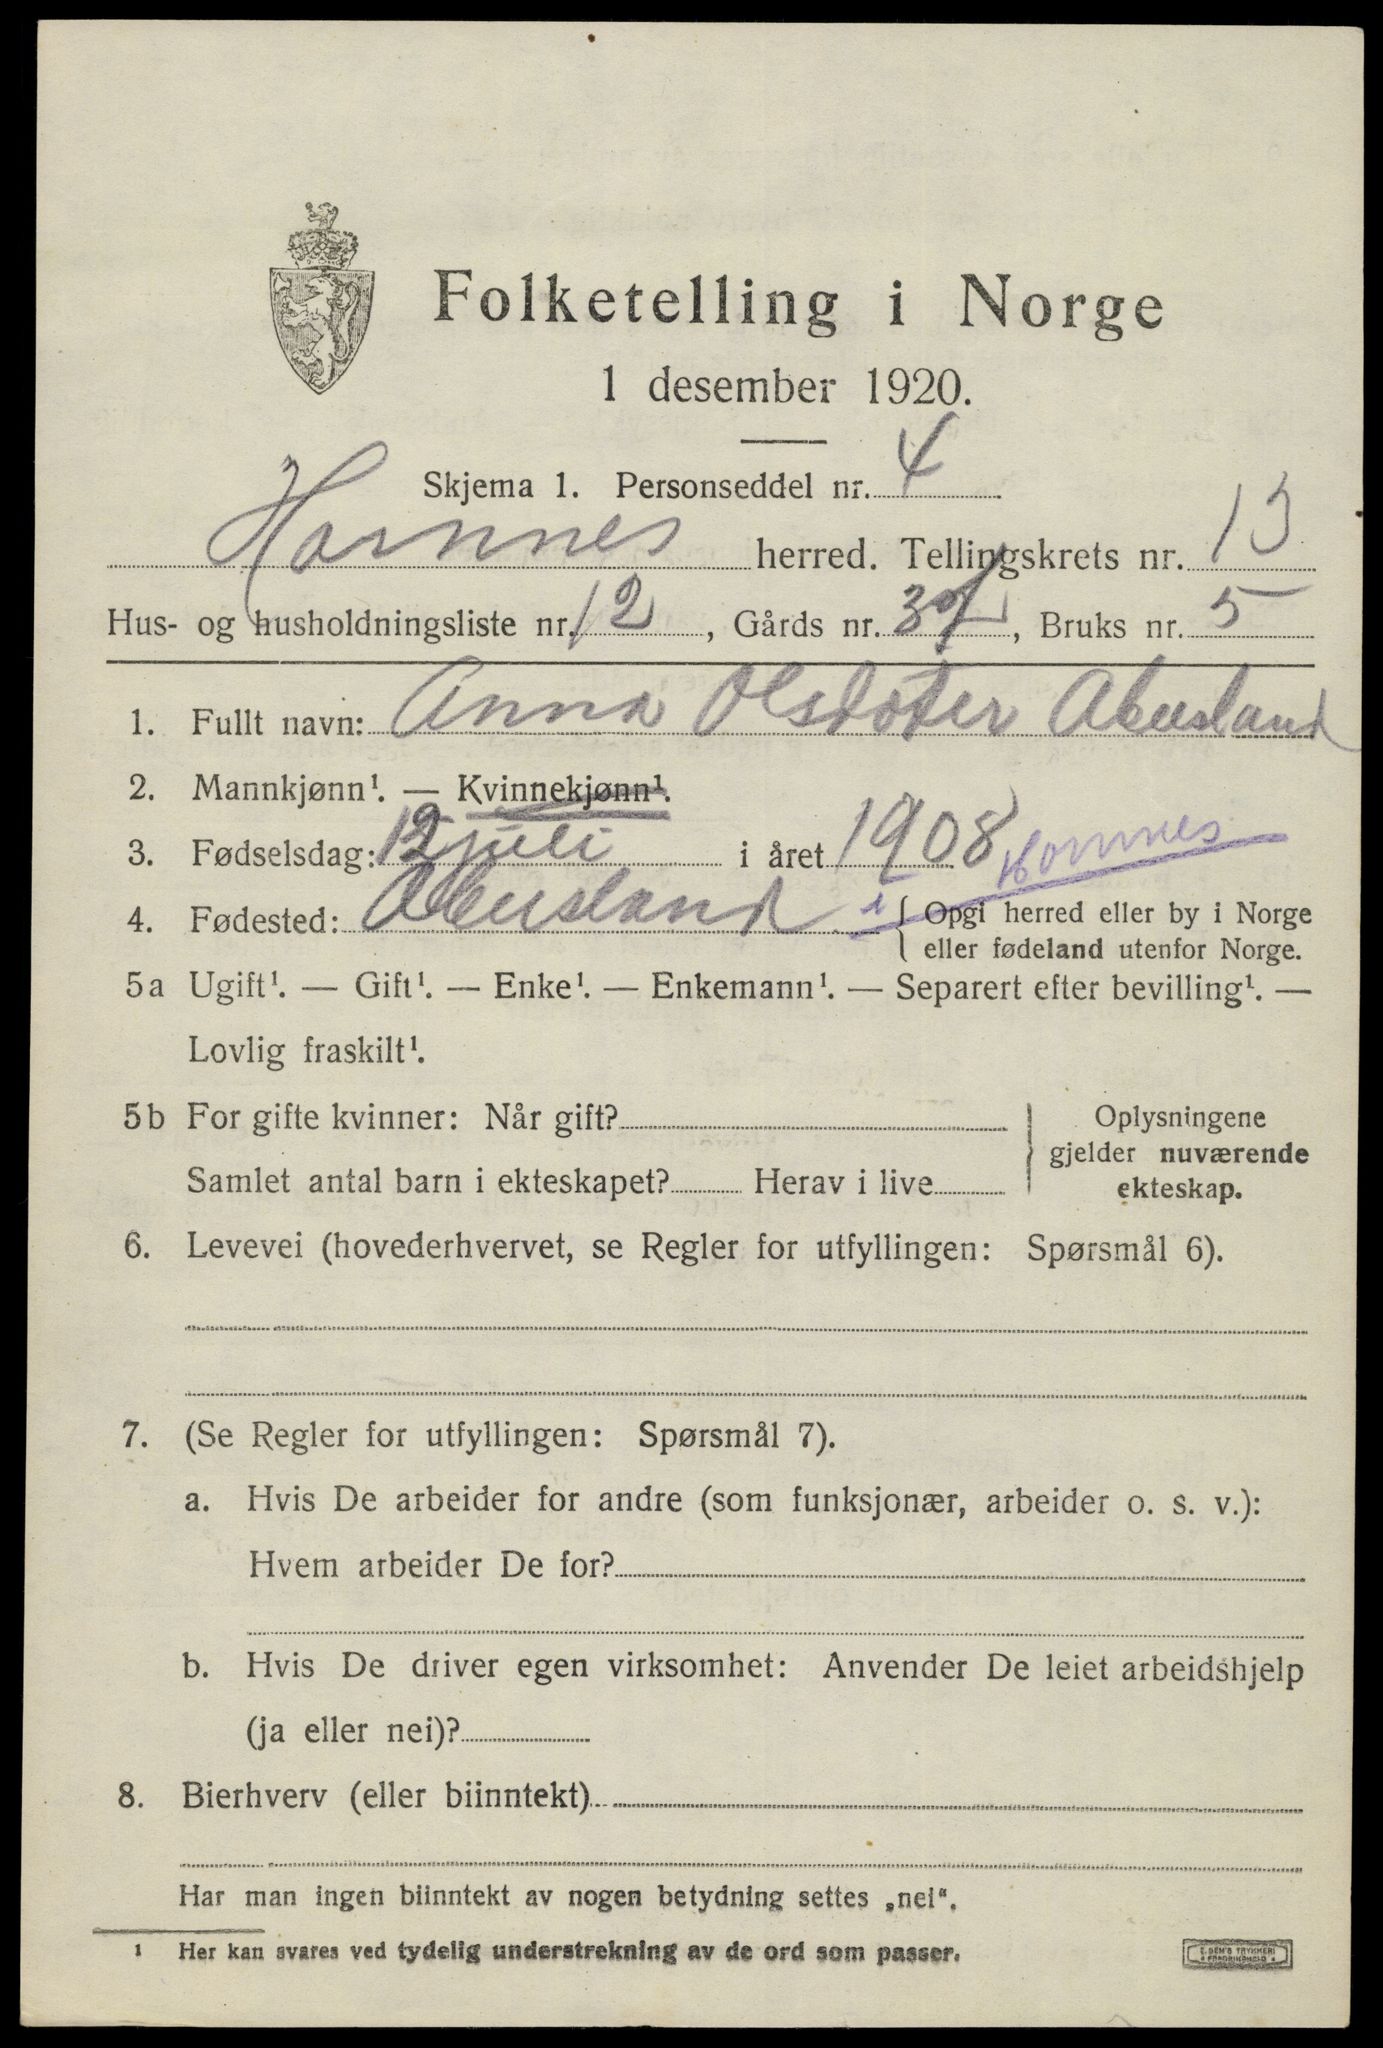 Folketelling i Norge
1 desember 1920.
Skjema 1. Personseddel nr. 4
Hornnes herred. Tellingskrets nr. 13
Hus- og husholdningsliste nr. 12, Gårds nr. 37, Bruks nr. 5
1. Fullt navn: Anna Olsdoter Abusland
2. Mannkjønn¹. — Kvinnekjønn¹.
3. Fødselsdag: 12 juli i året 1908
4. Fødested: Abusland i Hornnes { Opgi herred eller by i Norge
eller fødeland utenfor Norge.
5a Ugift¹. — Gift¹. — Enke¹. — Enkemann¹. — Separert efter bevilling¹. —
Lovlig fraskilt¹.
5b For gifte kvinner: Når gift?
Samlet antal barn i ekteskapet? Herav i live
} Oplysningene
gjelder nuværende
ekteskap.
6. Levevei (hovederhvervet, se Regler for utfyllingen: Spørsmål 6).
7. (Se Regler for utfyllingen: Spørsmål 7).
a. Hvis De arbeider for andre (som funksjonær, arbeider o. s. v.):
Hvem arbeider De for?
b. Hvis De driver egen virksomhet: Anvender De leiet arbeidshjelp
(ja eller nei)?
8. Bierhverv (eller biinntekt)
Har man ingen biinntekt av nogen betydning settes „nei“.
¹ Her kan svares ved tydelig understrekning av de ord som passer.
E. SEM'S TRYKKERI
FREDRIKSHALD